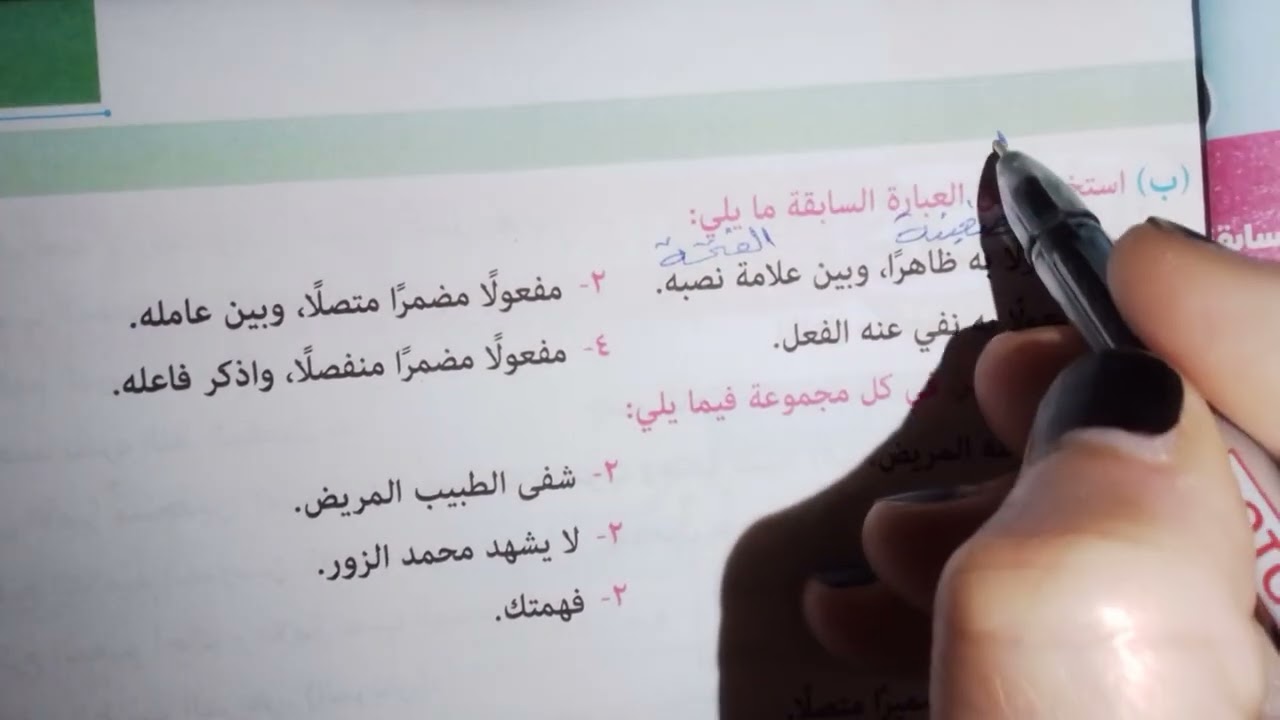 (ب) العبارة السابقة ما يلي:
الفتحة
به ظاهرًا، وبين علامة نصبه.
٢- مفعولًا مضمرًا متصلًا، وبين عامله.
به نفي عنه الفعل.
٤- مفعولًا مضمرًا منفصلًا، واذكر فاعله.
في كل مجموعة فيما يلي:
المريض.
٢- شفى الطبيب المريض.
٢- لا يشهد محمد الزور.
٢- فهمتك.
متصلًا.